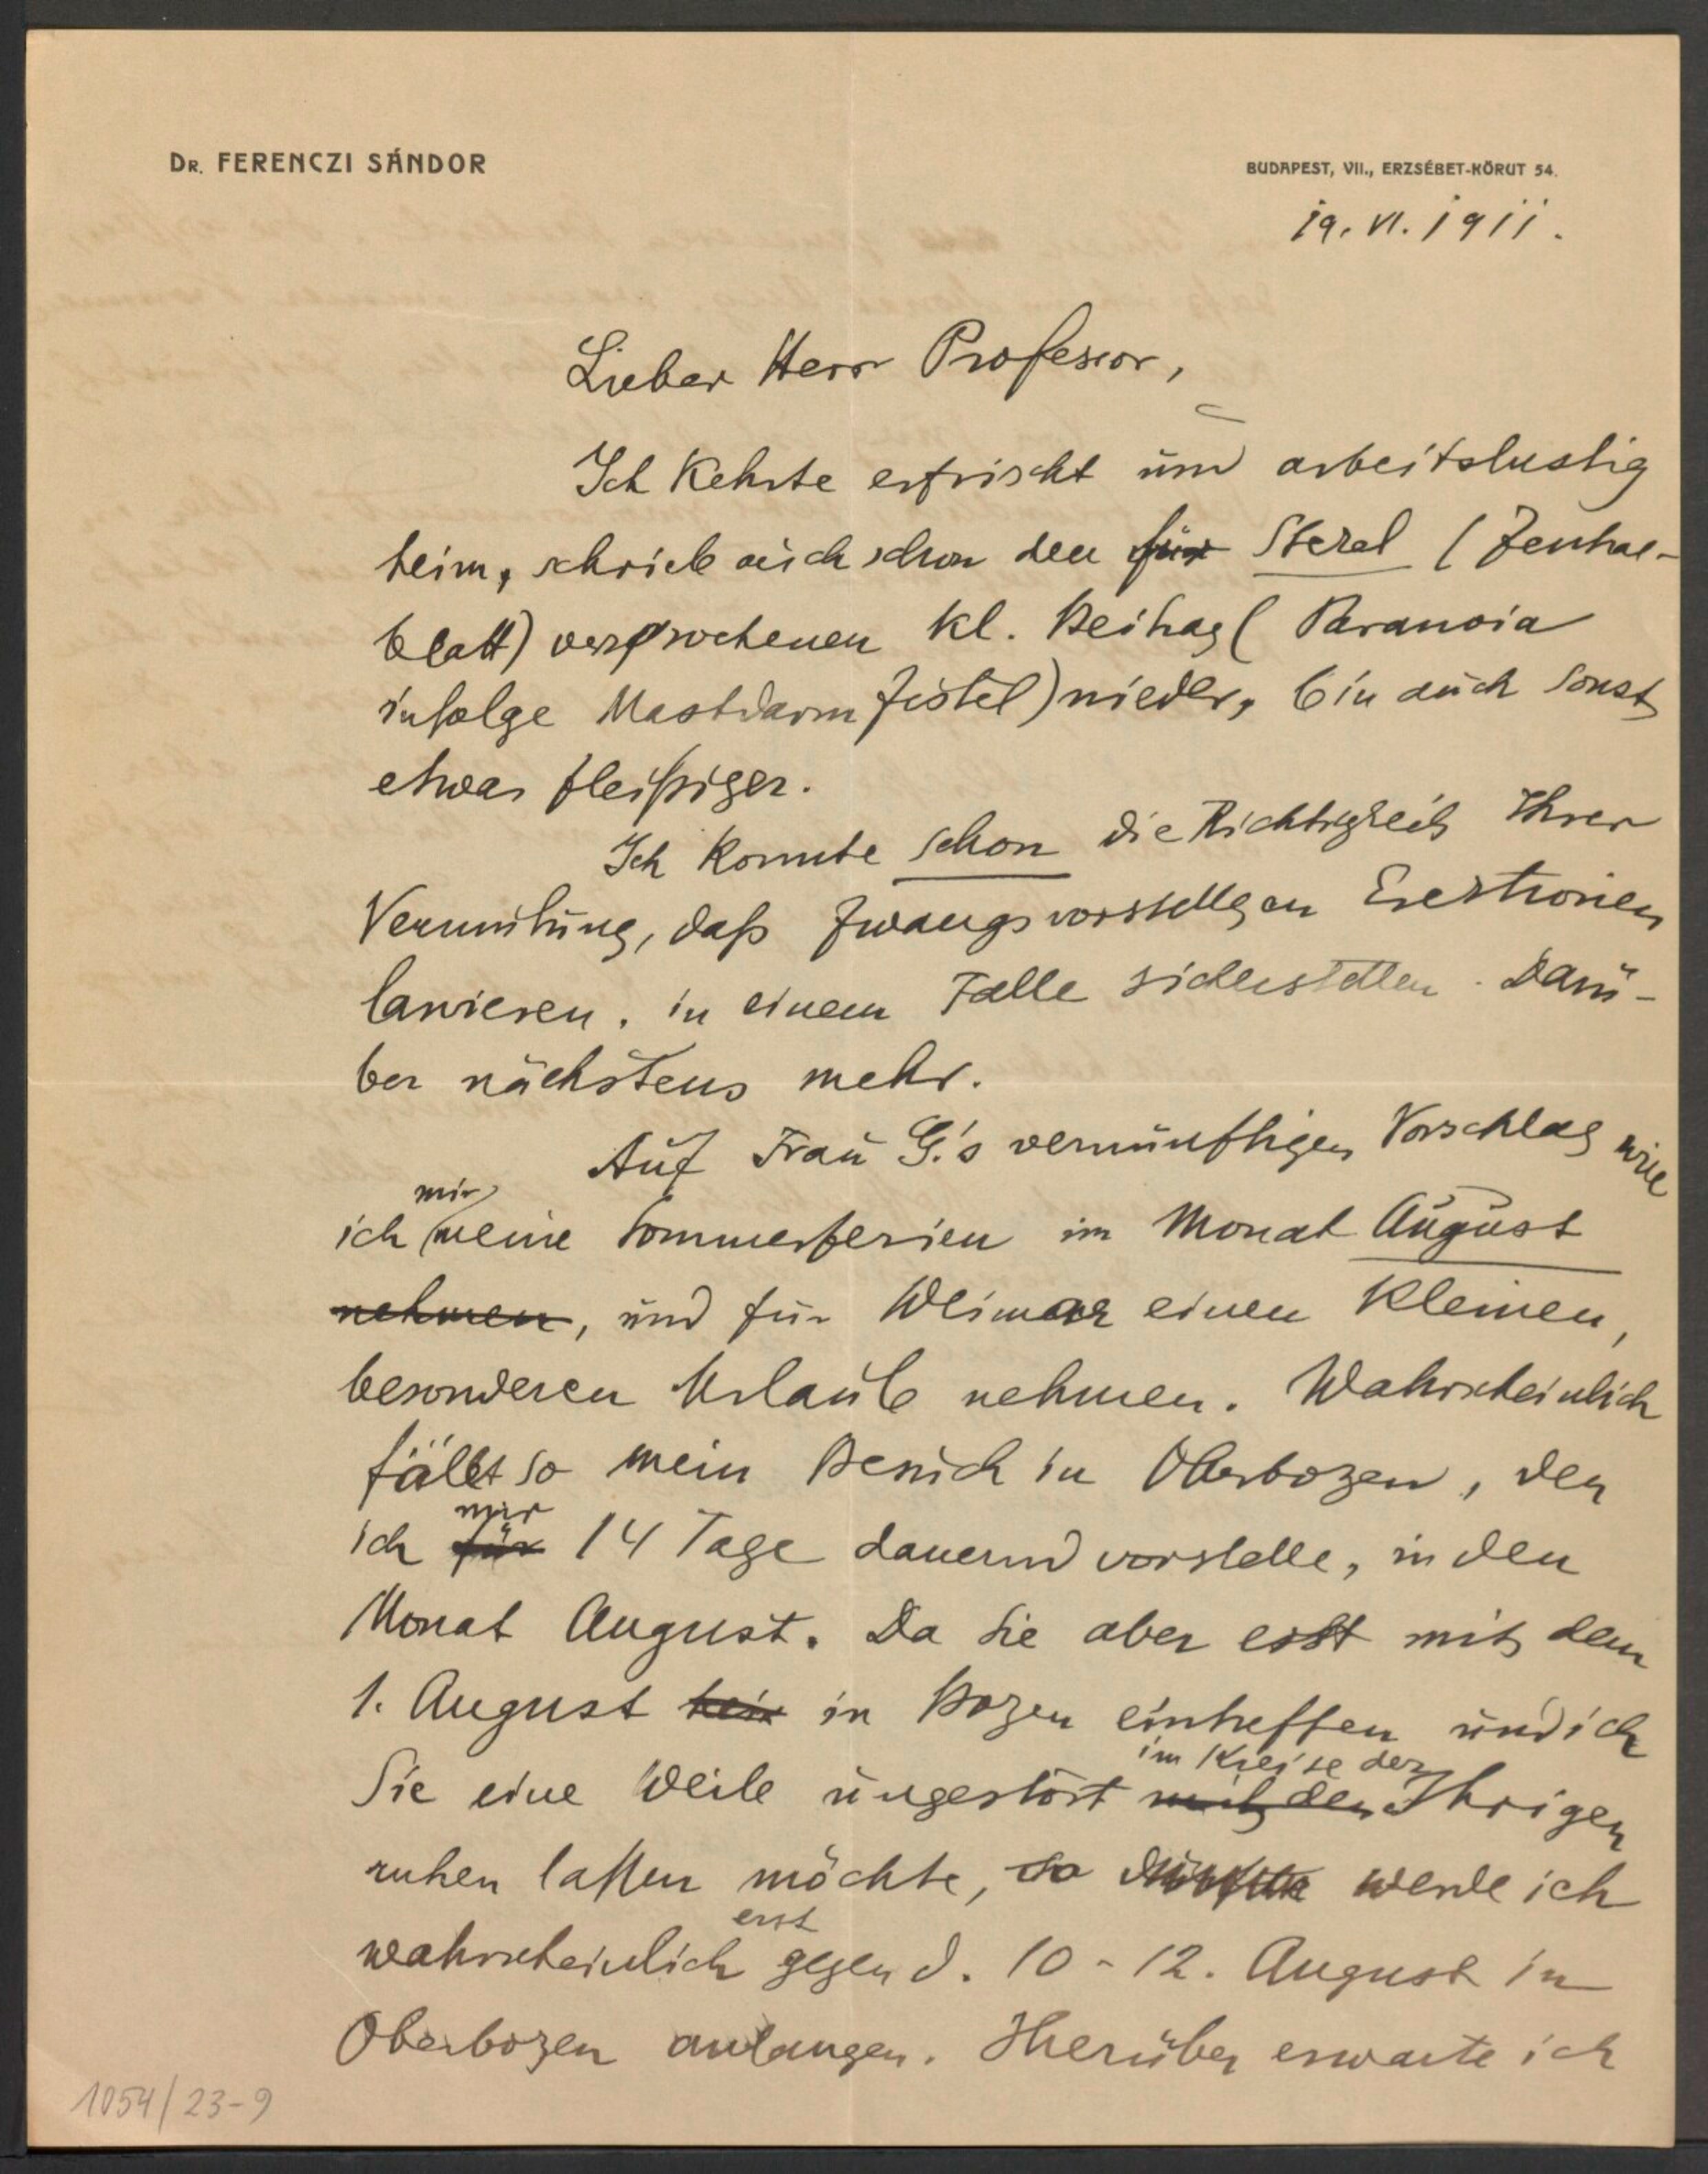 Dr. FERENCZI SÁNDOR
BUDAPEST, VII., ERZSÉBET-KÖRUT 54.
19. VI. 1911.
Lieber Herr Professor,
Ich kehrte erfrischt und arbeitslustig
heim, schrieb auch schon den für Stekel (Zentral-
blatt) versprochenen kl. Beitrag (Paranoia
infolge Mastdarmfistel) nieder, bin auch sonst
etwas fleißiger.
Ich konnte schon die Richtigkeit Ihrer
Vermutung, daß Zwangsvorstellgen Erektionen
larvieren, in einem Falle sicherstellen. Darü-
ber nächstens mehr.
Auf Frau G.'s vernünftigen Vorschlag will
mir
ich meine Sommerferien im Monat August
nehmen, und für Weimar einen kleinen,
besonderen Urlaub nehmen. Wahrscheinlich
fällt so mein Besuch in Oberbozen, den
mir
ich für 14 Tage dauernd vorstelle, in den
Monat August. Da Sie aber erst mit dem
1. August in Bozen eintreffen und ich
im Kreise der
Sie eine Weile ungestört mit den Ihrigen
ruhen lassen möchte, so dürfte werde ich
erst
wahrscheinlich gegen d. 10-12. August in
Oberbozen anlangen. Hierüber erwarte ich
1054/23-9